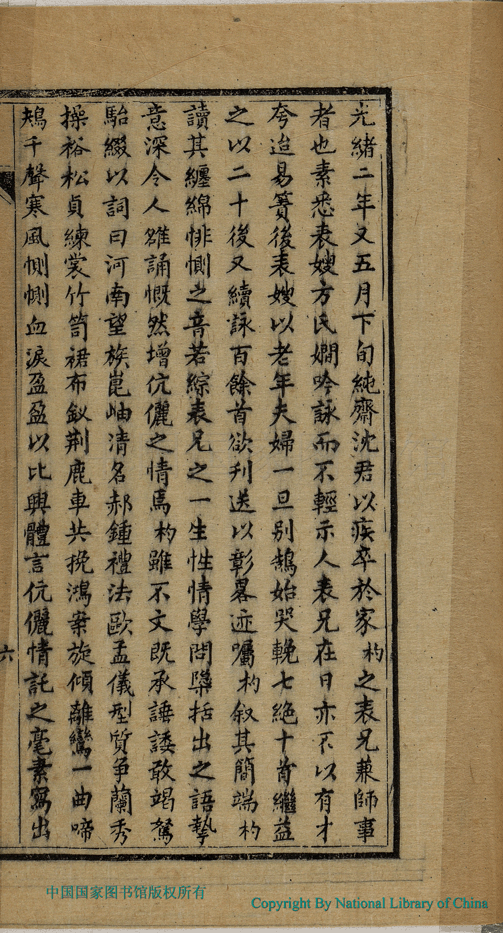 光緒二年又五月下旬純齋沈君以疾卒於家杓之表兄兼師事
者也素悉表嫂方氏嫺吟詠而不輕示人表兄在日亦不以有才
夸迨易簀後表嫂以老年夫婦一旦別鵠始哭輓七絕十首繼益
之以二十後又續詠百餘首欲刋送以彰畧迹囑杓叙其簡端杓
讀其纏綿悱惻之音若綜表兄之一生性情學問檃括出之語摯
意深令人雒誦慨然增伉儷之情焉杓雖不文既承諈諉敢竭駑
駘綴以詞曰河南望族崑岫清名郝鍾禮法歐孟儀型質争蘭秀
操裕松貞練裳竹笥裙布釵荆鹿車共挽鴻案旋傾離鸞一曲啼
鴂千聲寒風惻惻血淚盈盈以比興體言伉儷情託之毫素寫出
六
中国国家图书馆版权所有
Copyright By National Library of China